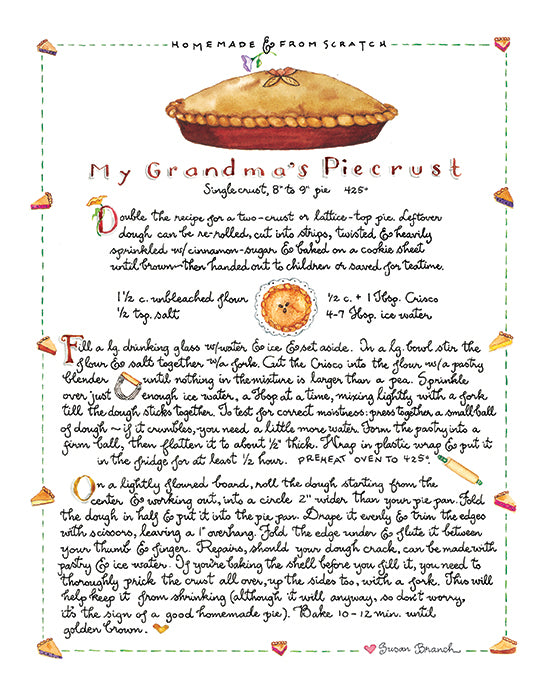 HOMEMADE & FROM SCRATCH
My Grandma's Piecrust
Single crust, 8" to 9" pie 425°
Double the recipe for a two-crust or lattice-top pie. Leftover
dough can be re-rolled, cut into strips, twisted & heavily
sprinkled w/cinnamon-sugar & baked on a cookie sheet
until brown—then handed out to children or saved for teatime.
1 1/2 c. unbleached flour
1/2 tsp. salt
1/2 c. + 1 Tbsp. Crisco
4-7 Tbsp. ice water
Fill a lg. drinking glass w/water & ice & set aside. In a lg. bowl stir the
flour & salt together w/a fork. Cut the Crisco into the flour w/a pastry
blender until nothing in the mixture is larger than a pea. Sprinkle
over just enough ice water, a Tbsp at a time, mixing lightly with a fork
till the dough sticks together. To test for correct moistness: press together a small ball
of dough ~ if it crumbles, you need a little more water. Form the pastry into a
firm ball, then flatten it to about 1/2" thick. Wrap in plastic wrap & put it
in the fridge for at least 1/2 hour. PREHEAT OVEN TO 425°.
On a lightly floured board, roll the dough starting from the
center & working out, into a circle 2" wider than your pie pan. Fold
the dough in half & put it into the pie pan. Drape it evenly & trim the edges
with scissors, leaving a 1" overhang. Fold the edge under & flute it between
your thumb & finger. Repairs, should your dough crack, can be made with
pastry & ice water. If you're baking the shell before you fill it, you need to
thoroughly prick the crust all over, up the sides too, with a fork. This will
help keep it from shrinking (although it will anyway, so don't worry,
it's the sign of a good homemade pie). Bake 10-12 min. until
golden brown.
Susan Branch